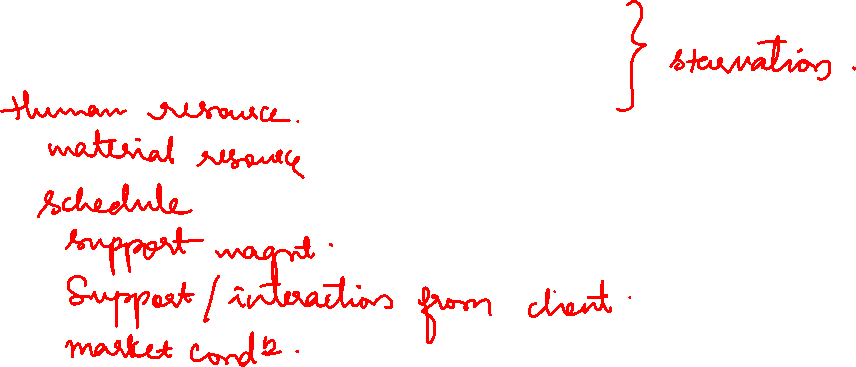 } starvation.
Human resource.
material resource
schedule
support magnt.
Support/interactions from client.
market condn.